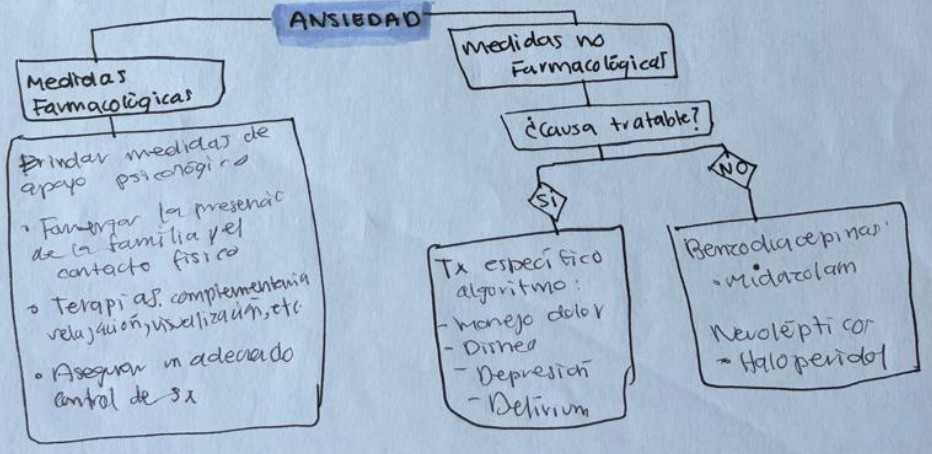 ANSIEDAD
Medidas
Farmacológicas
Brindar medidas de
apoyo psicológico
• la presenc
de la familia y el
contacto físico
• Terapias complementaria
relajación, visualización, etc
• Asegurar un adecuado
control de sx
medidas no
Farmacológicas
¿Causa tratable?
Sí
NO
Tx específico
algoritmo:
- Manejo dolor
- Disnea
- Depresión
- Delirium
Benzodiacepinas:
• Midazolam
Neuolépticos
- Haloperidol